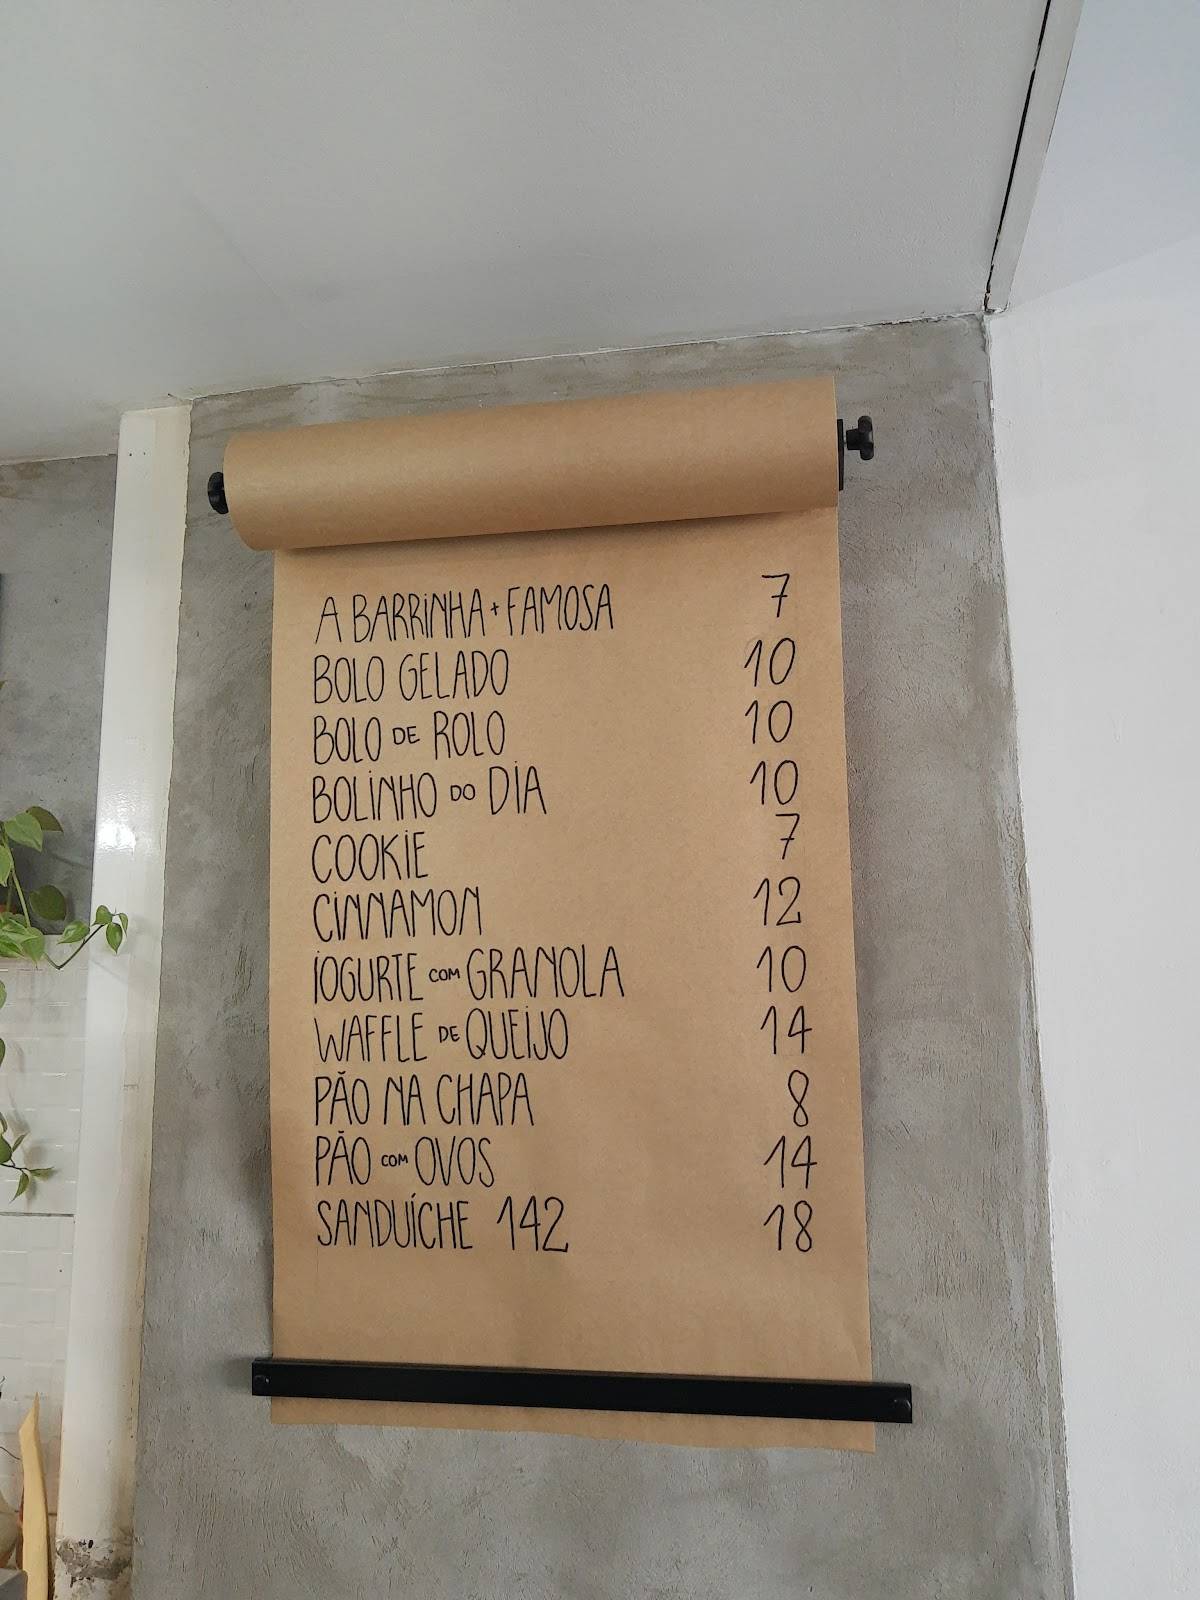 A BARRINHA + FAMOSA 7
BOLO GELADO 10
BOLO DE ROLO 10
BOLINHO DO DIA 10
COOKIE 7
CINNAMON 12
IOGURTE COM GRANOLA 10
WAFFLE DE QUEIJO 14
PÃO NA CHAPA 8
PÃO COM OVOS 14
SANDUÍCHE 142 18